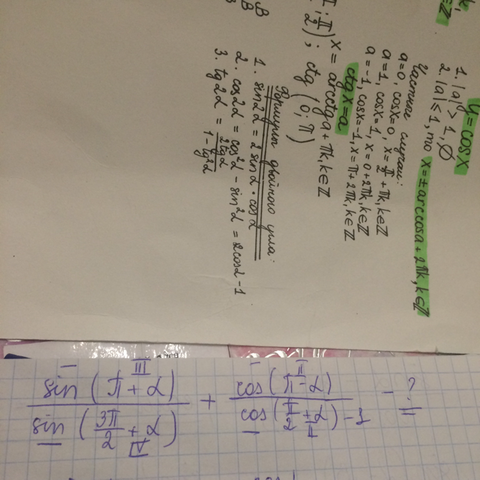 y = cosx
1. |a| > 1, ∅
2. |a| ≤ 1, то x = ± arccosa + 2πk, k∈ℤ
Частные случаи:
a=0, cosx=0, x = π/2 + πk, k∈ℤ
a=1, cosx=1, x = 0+2πk, k∈ℤ
a=-1, cosx=-1, x = π+2πk, k∈ℤ
ctgx=a
x = arcctga + πk, k∈ℤ
; π/2); ctg (0; π)
Формулы двойного угла:
1. sin2α = 2sinα · cosα
2. cos2α = cos²α - sin²α = 2cosα - 1
3. tg2α = 2tgα / 1 - tg²α
sin (π + α) / sin (3π/2 + α) + cos (π - α) / cos (π/2 + α) - 1 - ?